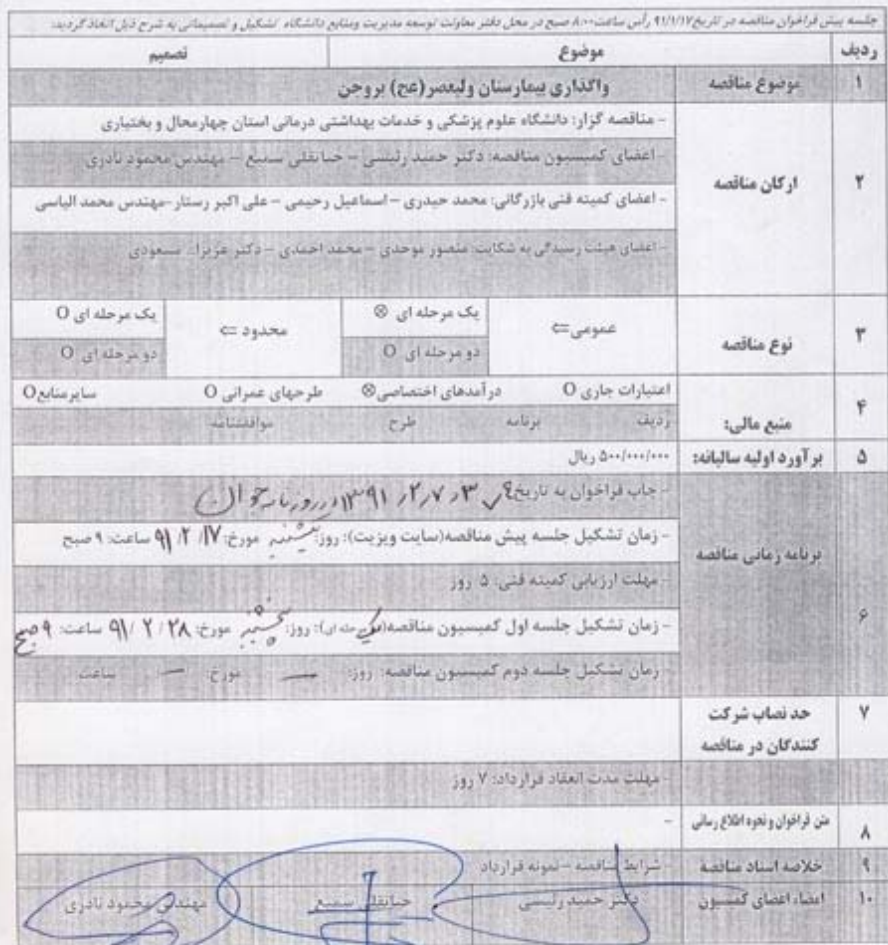 جلسه پیش فراخوان مناقصه در تاریخ ۹۱/۱/۱۷ رأس ساعت ۸:۰۰ صبح در محل دفتر معاونت توسعه مدیریت ومنابع دانشگاه تشکیل و تصمیماتی به شرح ذیل اتخاذ گردید:
ردیف موضوع تصمیم
۱ موضوع مناقصه واگذاری بیمارستان ولیعصر(عج) بروجن
۲ ارکان مناقصه
- مناقصه گزار: دانشگاه علوم پزشکی و خدمات بهداشتی درمانی استان چهارمحال و بختیاری
- اعضای کمیسیون مناقصه: دکتر حمید رئیسی – حیاتقلی سمیع – مهندس محمود نادری
- اعضای کمیته فنی بازرگانی: محمد حیدری – اسماعیل رحیمی – علی اکبر رستار -مهندس محمد الیاسی
- اعضای هیئت رسیدگی به شکایت: منصور موحدی – محمد احمدی – دکتر عزیزا.. مسعودی
۳ نوع مناقصه
عمومی⇐ یک مرحله ای ⊗ محدود ⇐ یک مرحله ای O
دو مرحله ای O دو مرحله ای O
۴ منبع مالی:
اعتبارات جاری O درآمدهای اختصاصی⊗ طرحهای عمرانی O سایرمنابعO
ردیف برنامه طرح موافقتنامه
۵ برآورد اولیه سالیانه: ۵۰۰/۰۰۰/۰۰۰ ریال
۶ برنامه زمانی مناقصه
- چاپ فراخوان به تاریخ ۱۳۹۱٫۲٫۷٫۳ در روزنامه جوان
- زمان تشکیل جلسه پیش مناقصه(سایت ویزیت): روز: مورخ: ۹۱/۲/۱۷ ساعت: ۹ صبح
- مهلت ارزیابی کمیته فنی: ۵ روز
- زمان تشکیل جلسه اول کمیسیون مناقصه( مرحله ای): روز: پنجشنبه مورخ: ۹۱/۲/۲۸ ساعت: ۹ صبح
- زمان تشکیل جلسه دوم کمیسیون مناقصه: روز: — مورخ: — ساعت
۷ حد نصاب شرکت
کنندگان در مناقصه
- مهلت مدت انعقاد قرارداد: ۷ روز
۸ متن فراخوان و نحوه اطلاع رسانی -
۹ خلاصه اسناد مناقصه - شرایط مناقصه – نمونه قرارداد
۱۰ امضاء اعضای کمیسیون دکتر حمید رئیسی حیاتقلی سمیع مهندس محمود نادری